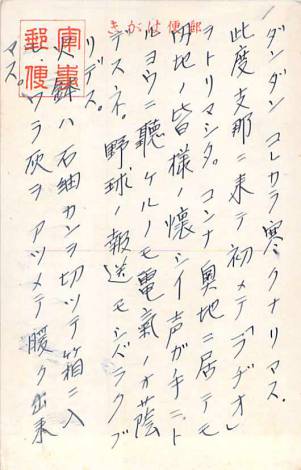 郵便はがき
軍事郵便
ダンダンコレカラ寒クナリマス。
此度支那ニ来テ初メテ「ラヂオ」
ヲトリマシタ。コンナ奥地ニ居テモ
内地ノ皆様ノ懐シイ声ガ手ニト
ルヨウニ聽ケルノモ電氣ノオ蔭
デスネ。野球ノ報送モシバラクブ
リデス。
火鉢ハ石油カンヲ切ツテ箱ニ入
レ、ワラ灰ヲアツメテ暖ク出来
マス。